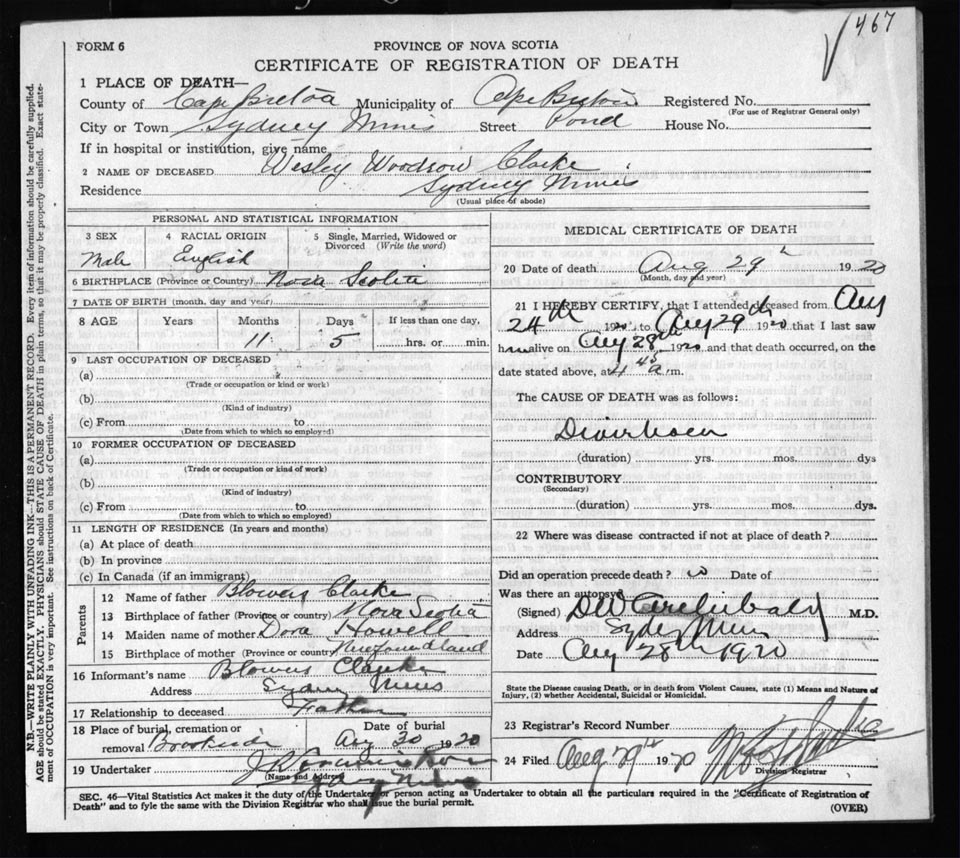 467
FORM 6
PROVINCE OF NOVA SCOTIA
CERTIFICATE OF REGISTRATION OF DEATH
1 PLACE OF DEATH—
County of Cape Breton Municipality of Cape Breton Registered No.
(For use of Registrar General only)
City or Town Sydney Mines Street Pond House No.
If in hospital or institution, give name
2 NAME OF DECEASED Wesley Woodrow Clarke
Residence Sydney Mines
(Usual place of abode)
N.B.—WRITE PLAINLY WITH UNFADING INK—THIS IS A PERMANENT RECORD. Every item of information should be carefully supplied.
AGE should be stated EXACTLY. PHYSICIANS should STATE CAUSE OF DEATH in plain terms, so that it may be properly classified. Exact state-
ment of OCCUPATION is very important. See instructions on back of Certificate.
PERSONAL AND STATISTICAL INFORMATION
3 SEX 4 RACIAL ORIGIN 5 Single, Married, Widowed or
Divorced (Write the word)
Male English
6 BIRTHPLACE (Province or Country) Nova Scotia
7 DATE OF BIRTH (month, day and year)
8 AGE Years Months Days If less than one day,
11 5 hrs. or min.
9 LAST OCCUPATION OF DECEASED
(a)
(Trade or occupation or kind or work)
(b)
(Kind of industry)
(c) From to
(Date from which to which so employed)
10 FORMER OCCUPATION OF DECEASED
(a)
(Trade or occupation or kind of work)
(b)
(Kind of industry)
(c) From to
(Date from which to which so employed)
11 LENGTH OF RESIDENCE (In years and months)
(a) At place of death
(b) In province
(c) In Canada (if an immigrant)
Parents
12 Name of father Blowers Clarke
13 Birthplace of father (Province or country) Nova Scotia
14 Maiden name of mother Dora Howell
15 Birthplace of mother (Province or country) Newfoundland
16 Informant's name Blowers Clarke
Address Sydney Mines
17 Relationship to deceased Father
18 Place of burial, cremation or Date of burial
removal Brookside Aug 30 1920
19 Undertaker
(Name and Address) Sydney Mines
MEDICAL CERTIFICATE OF DEATH
20 Date of death Aug 29th 1920
(Month, day and year)
21 I HEREBY CERTIFY, that I attended deceased from Aug
24th 1920 to Aug 29th 1920 that I last saw
him alive on Aug 28th 1920 and that death occurred, on the
date stated above, at 4 45 a m.
The CAUSE OF DEATH was as follows:
Diarrhoea
(duration) yrs. mos. dys
CONTRIBUTORY
(Secondary)
(duration) yrs. mos. dys.
22 Where was disease contracted if not at place of death?
Did an operation precede death? no Date of
Was there an autopsy
(Signed) DW Archibald M.D.
Address Sydney Mines
Date Aug 28th 1920
State the Disease causing Death, or in death from Violent Causes, state (1) Means and Nature of
Injury, (2) whether Accidental, Suicidal or Homicidal.
23 Registrar's Record Number
24 Filed Aug 1920
Division Registrar
SEC. 46—Vital Statistics Act makes it the duty of the Undertaker or person acting as Undertaker to obtain all the particulars required in the "Certificate of Registration of
Death" and to fyle the same with the Division Registrar who shall issue the burial permit.
(OVER)